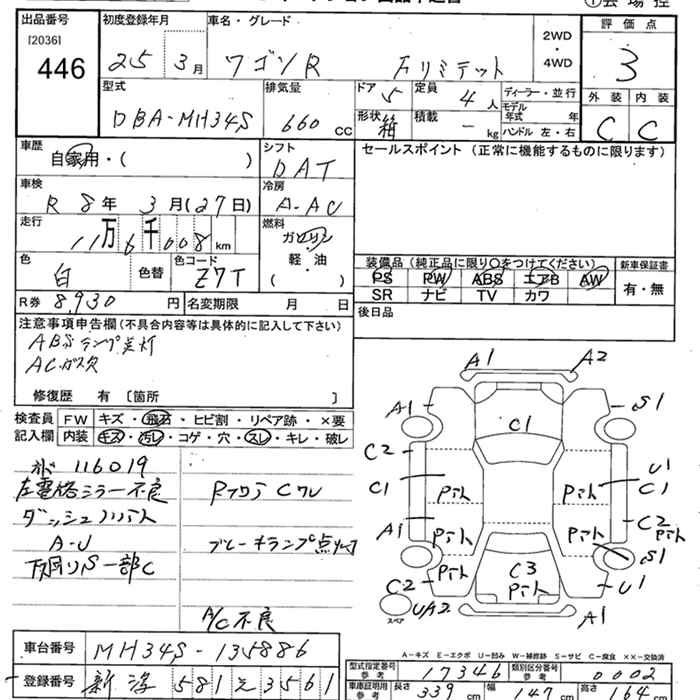 出品番号 初度登録年月 車名・グレード 2WD・4WD 評価点
[2036] 446 25 3月 ワゴンR Fリミテット 3
型式 排気量 ドア 定員 ディーラー・並行 外装 内装
DBA-MH34S 660 CC 5 4人 モデル年式 年 C C
形状 箱 積載 - kg ハンドル 左・右
車歴 自家用・( ) シフト DAT セールスポイント(正常に機能するものに限ります)
車検 R 8年 3月(27日) 冷房 A-AC
走行 11万6千008km 燃料 ガソリン・軽・油 ( )
色 白 色替 色コード Z7T
装備品(純正品に限り○をつけてください) 新車保証書
PS PW ABS エアB AW 有・無
SR ナビ TV カワ
R券 8,930円 名変期限 月 日 後日品
注意事項申告欄(不具合内容等は具体的に記入して下さい)
ABSランプ点灯
ACガス欠
修復歴 有 〔箇所 〕
検査員 FW キズ・飛石・ヒビ割・リペア跡・×要
記入欄 内装 キズ・汚レ・コゲ・穴・スレ・キレ・破レ
116019
左電格ミラー不良 RフロアCワレ
ダッシュ
A-U ブレーキランプ点灯
下廻りS一部C
A/C不良
A1 A2
A1 C1 S1
C2 U1
C1 Pｷﾄ Pｷﾄ C1
A1 Pｷﾄ Pｷﾄ C2 Pｷﾄ
Pｷﾄ Pｷﾄ S1
C2 C3 Pｷﾄ U1
スペア UA2 A1
A-キズ E-エクボ U-凹み W-補修跡 S-サビ C-腐食 XX-交換済
車台番号 MH34S-135886
型式指定番号 参考 17346 類別区分番号 参考 0002
登録番号 新潟 581 え 3561
車庫証明用 参考 長さ 339cm 幅 147cm 高さ 164cm